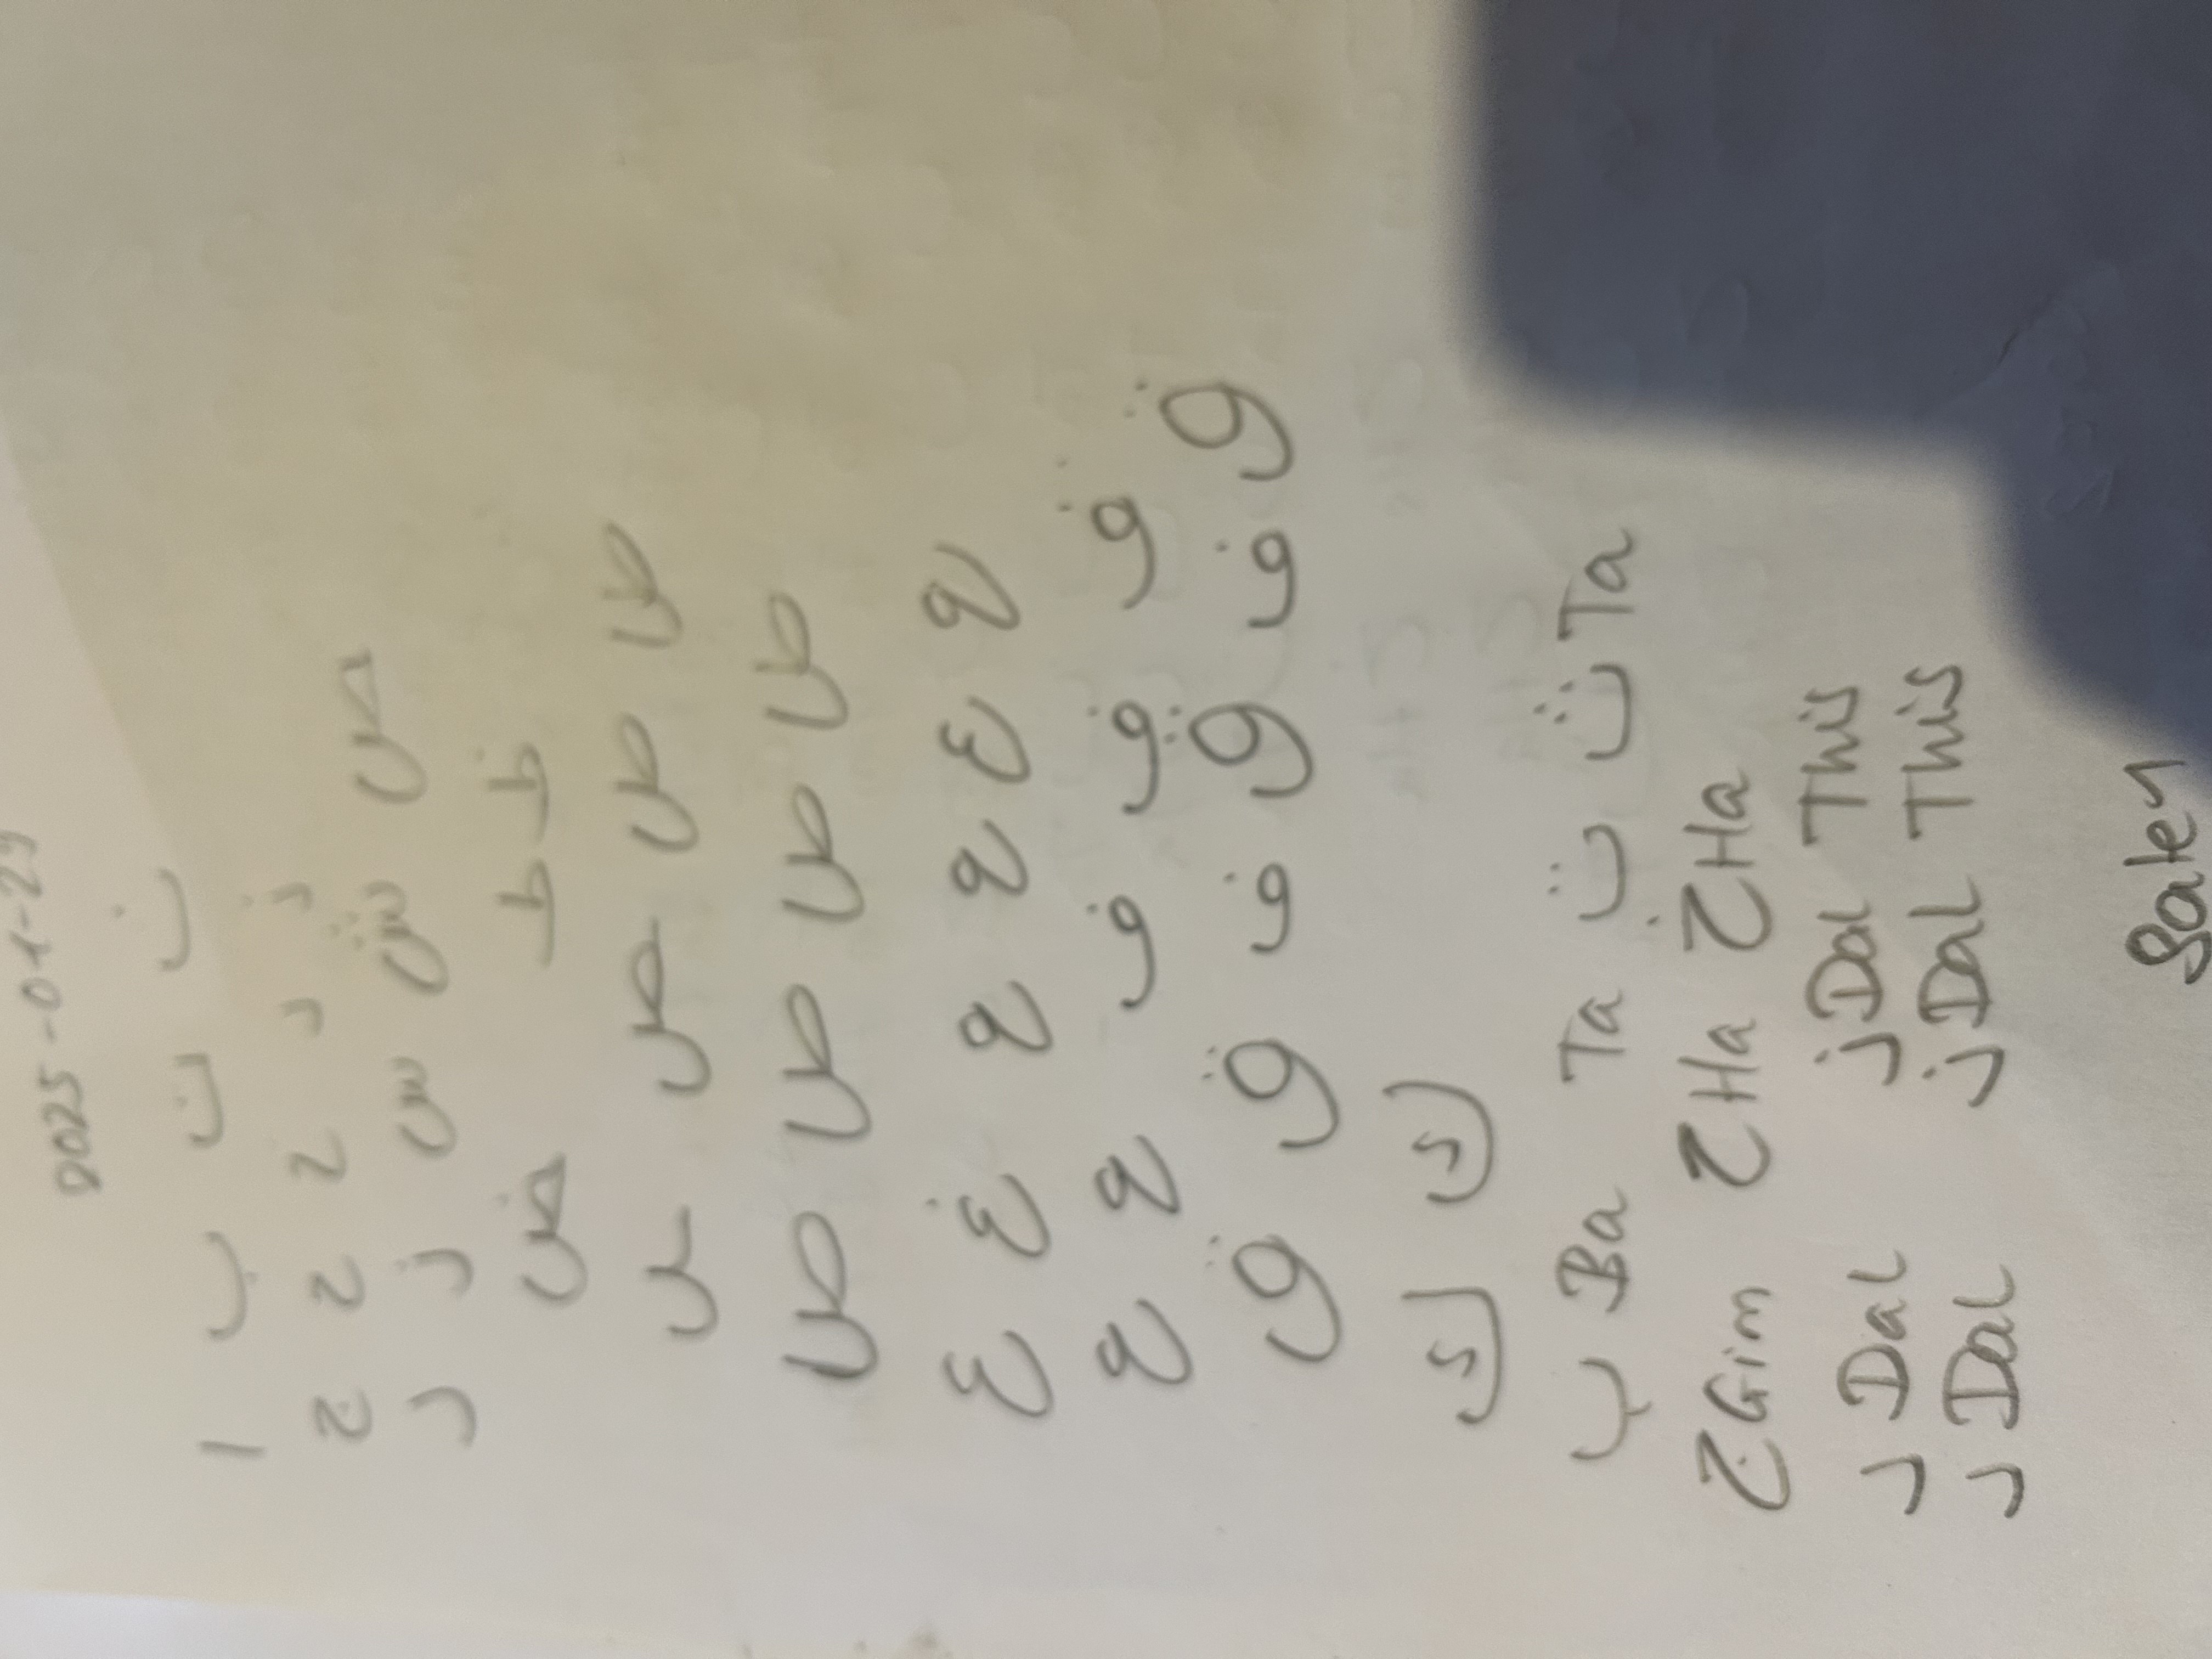 2025-01-29
ا ب ت
ج ح ح د ذ
ر ز س ش ص
ض ط ظ
ص ص ص
ص ص ص ص
ع غ ع
ف ق ق
ق ق ف ق ف ق
ك ك
ب Ba Ta ت ث Ta
ج Gim ح Ha خ Ha
د Dal ذ Dal This
د Dal ذ Dal This